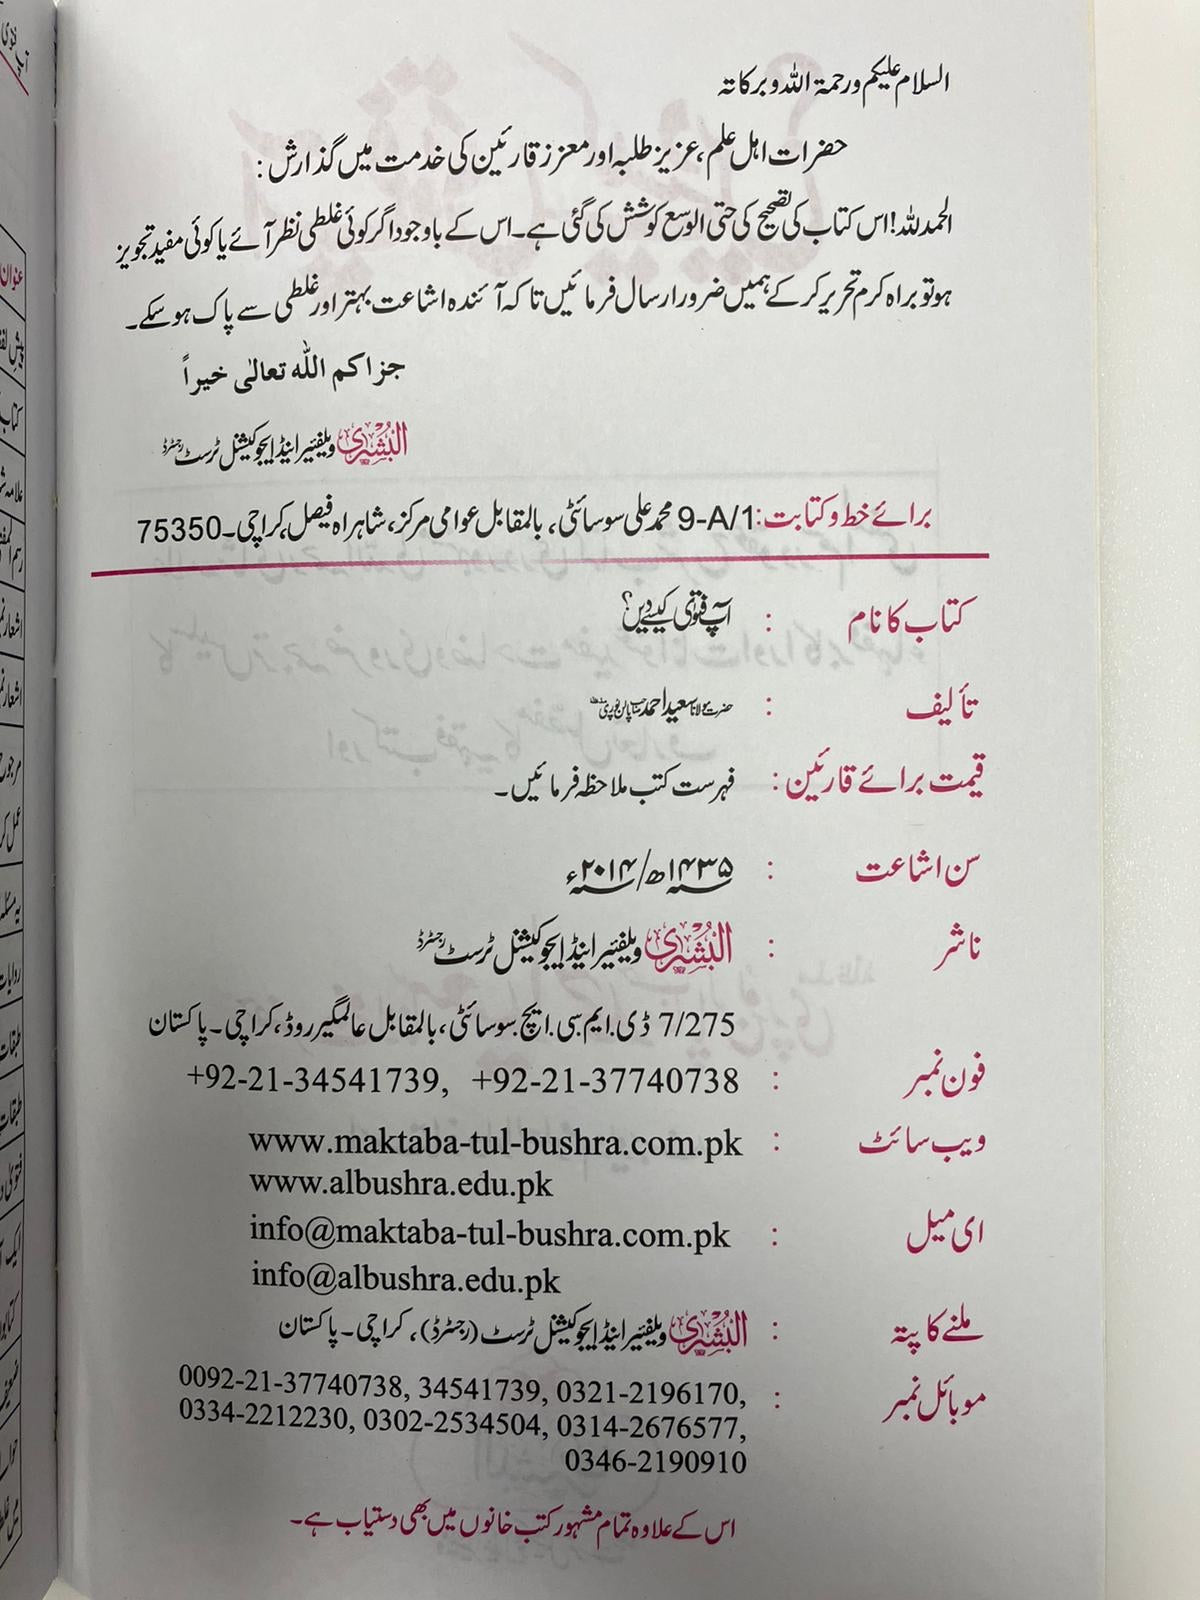 السلام علیکم ورحمۃ اللہ وبرکاتہ
حضرات اہل علم، عزیز طلبہ اور معزز قارئین کی خدمت میں گذارش:
الحمدللہ! اس کتاب کی تصحیح کی حتی الوسع کوشش کی گئی ہے۔ اس کے باوجود اگر کوئی غلطی نظر آئے یا کوئی مفید تجویز
ہو تو براہ کرم تحریر کر کے ہمیں ضرور ارسال فرمائیں تاکہ آئندہ اشاعت بہتر اور غلطی سے پاک ہو سکے۔
جزاکم اللہ تعالٰی خیراً
البُشریٰ ویلفیئر اینڈ ایجوکیشنل ٹرسٹ رجسٹرڈ
برائے خط و کتابت: 9-A/1 محمد علی سوسائٹی، بالمقابل عوامی مرکز، شاہراہ فیصل، کراچی۔ 75350
کتاب کا نام : آپ فتویٰ کیسے دیں؟
تألیف : حضرت مولانا سعید احمد صاحب پالن پوری
قیمت برائے قارئین: فہرست کتب ملاحظہ فرمائیں۔
سن اشاعت : ۱۴۳۵ھ/ ۲۰۱۴ء
ناشر : البُشریٰ ویلفیئر اینڈ ایجوکیشنل ٹرسٹ رجسٹرڈ
7/275 ڈی.ایم.سی.ایچ.سوسائٹی، بالمقابل عالمگیر روڈ، کراچی۔ پاکستان
فون نمبر : +92-21-34541739, +92-21-37740738
ویب سائٹ : www.maktaba-tul-bushra.com.pk
www.albushra.edu.pk
ای میل : info@maktaba-tul-bushra.com.pk
info@albushra.edu.pk
ملنے کا پتہ : البُشریٰ ویلفیئر اینڈ ایجوکیشنل ٹرسٹ (رجسٹرڈ)، کراچی۔ پاکستان
موبائل نمبر : 0092-21-37740738, 34541739, 0321-2196170,
0334-2212230, 0302-2534504, 0314-2676577,
0346-2190910
اس کے علاوہ تمام مشہور کتب خانوں میں بھی دستیاب ہے۔